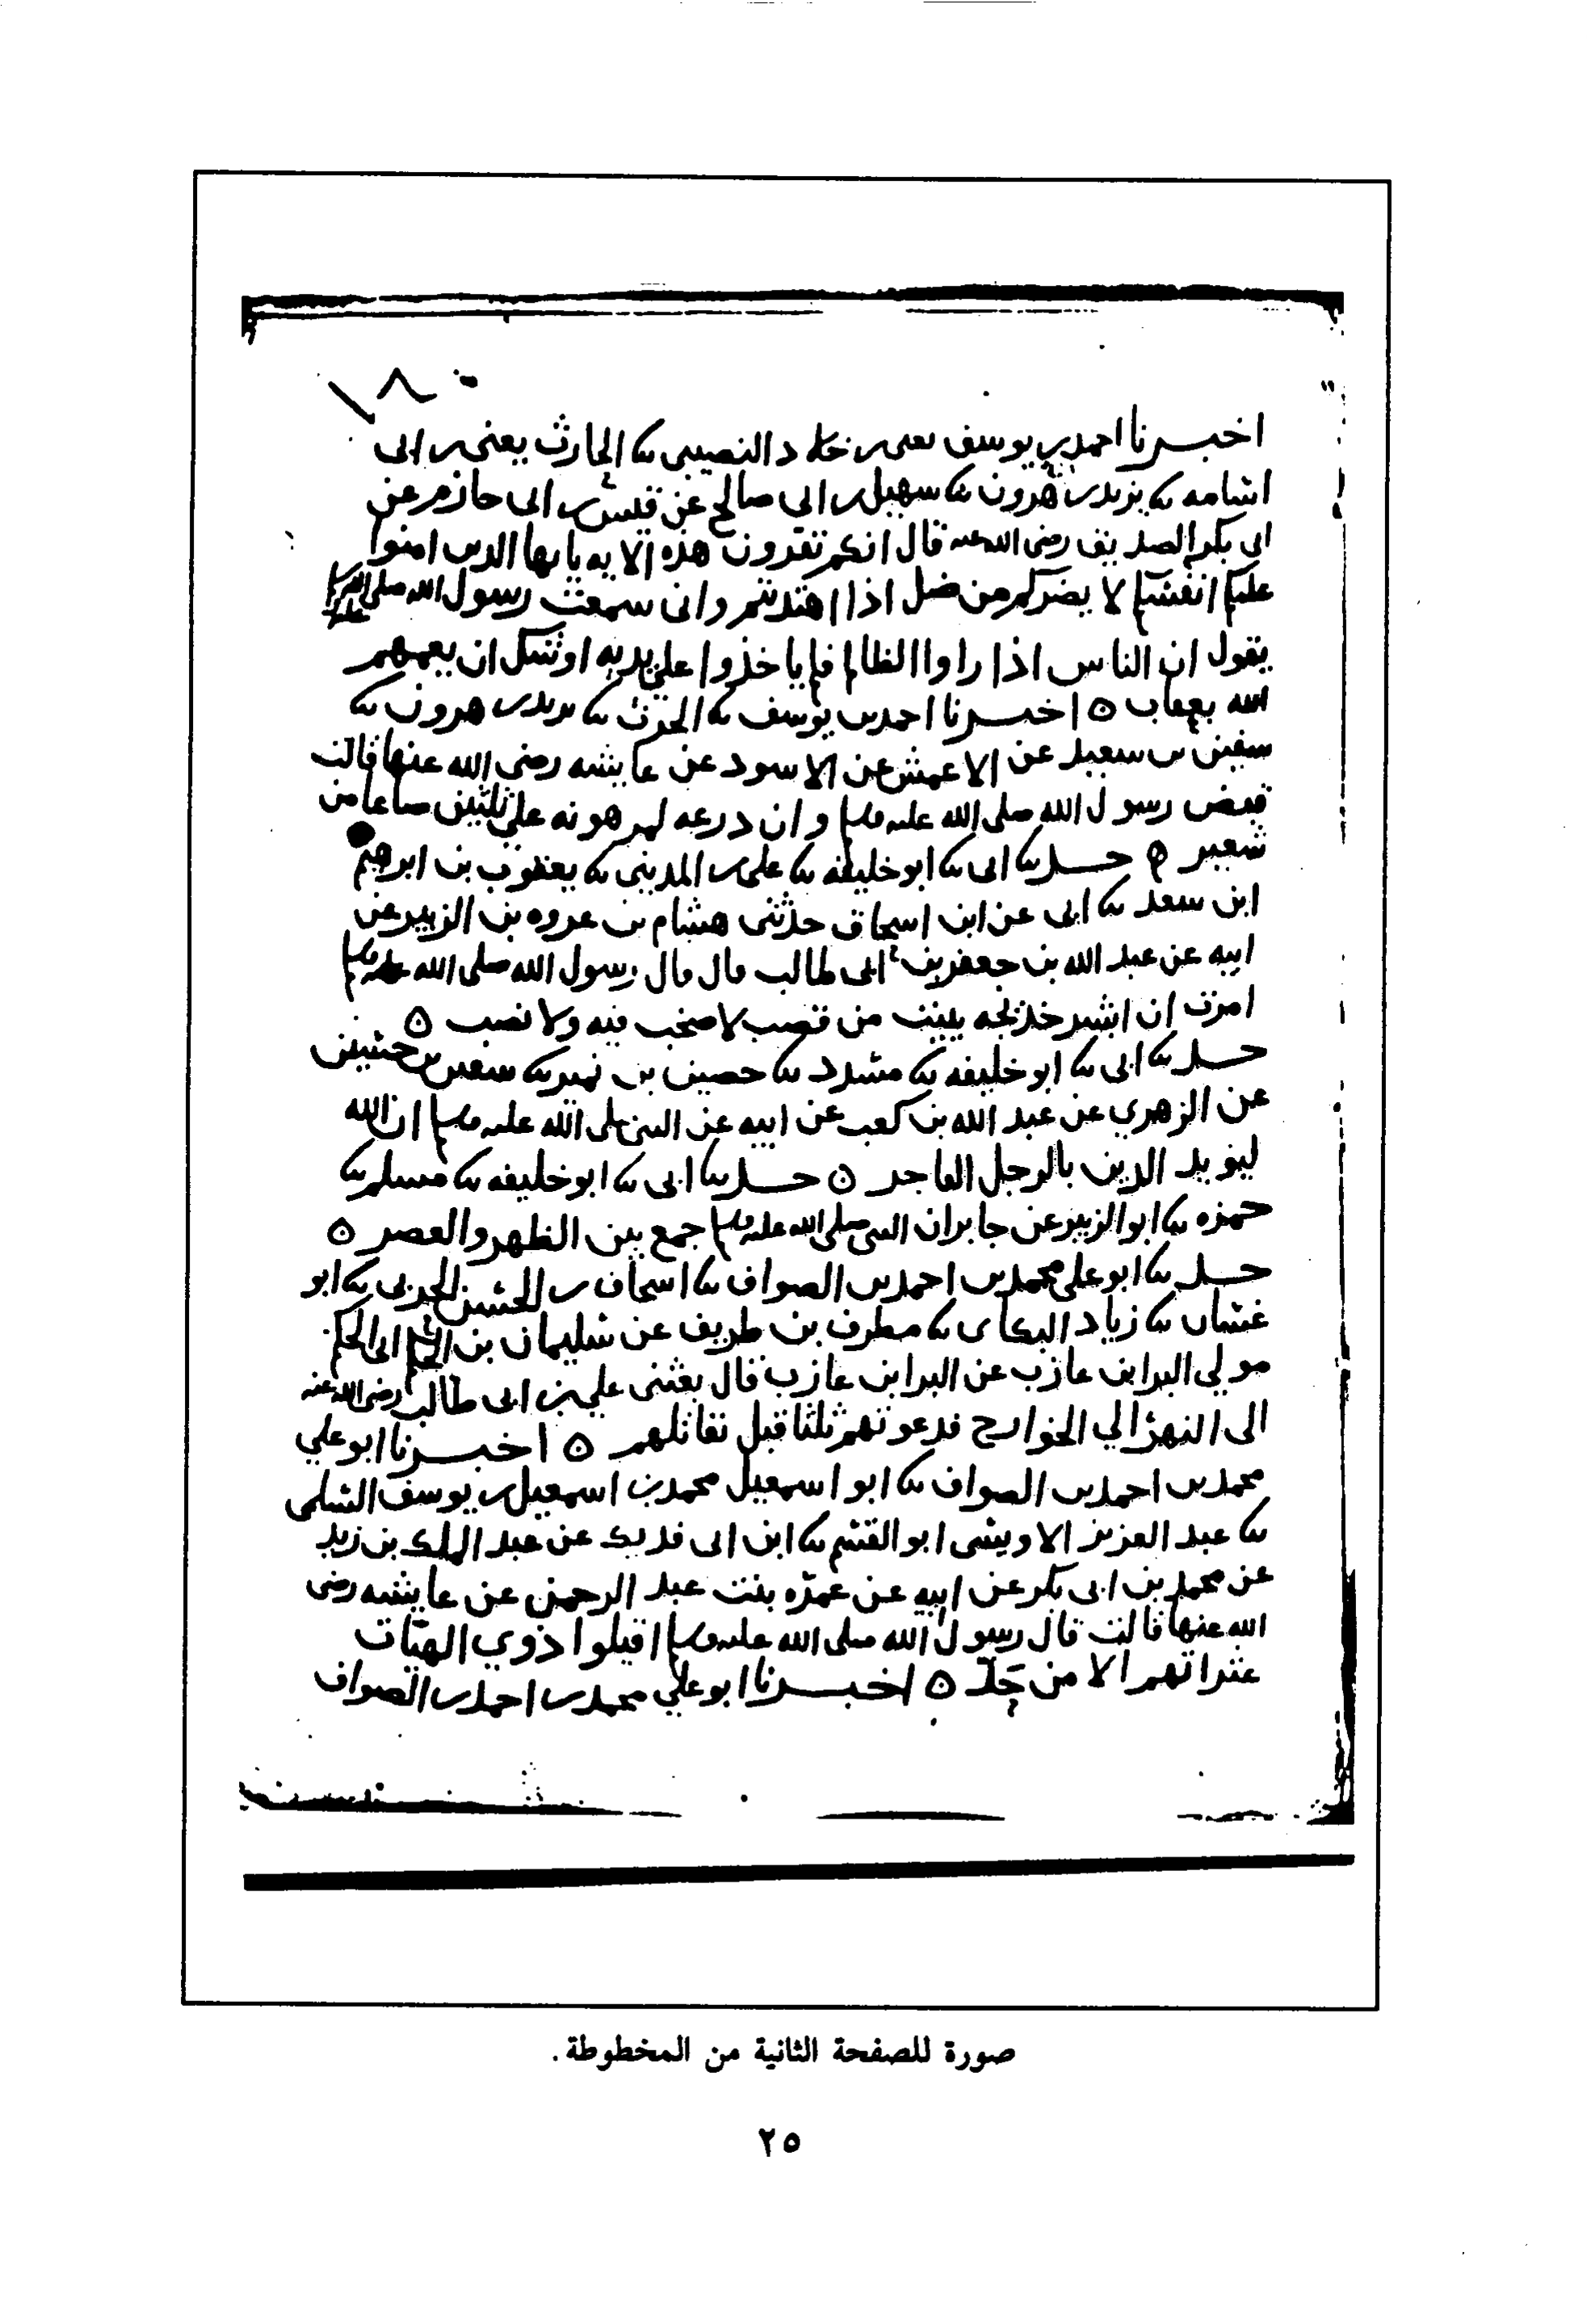 ١٨٠
اخبرنا احمد بن يوسف يعنى بن خلاد النصيبى نا الحارث يعنى بن ابى
اسامه نا يزيد بن هرون نا سهيل بن ابى صالح عن قيس بن ابى حازم عن
ابى بكر الصديق رضى الله عنه قال انكم تقرون هذه الايه يايها الذين امنوا
عليكم انفسكم لا يضركم من ضل اذا اهتديتم وانى سمعت رسول الله صلى الله عليه
يقول ان الناس اذا راوا الظالم فلم ياخذوا على يديه اوشك ان يعمهم
الله بعقاب ٥ اخبرنا احمد بن يوسف نا الحرث نا يزيد بن هرون نا
سفين بن سعيد عن الاعمش عن الاسود عن عايشه رضى الله عنها قالت
قبض رسول الله صلى الله عليه وسلم وان درعه لمرهونه على ثلثين صاعا من
شعير ٥ حدثنا ابى نا ابو خليفه نا على بن المدينى نا يعقوب بن ابرهيم
ابن سعد نا ابى عن ابن اسحاق حدثنى هشام بن عروه بن الزبير عن
ابيه عن عبد الله بن جعفر بن ابى طالب قال قال رسول الله صلى الله عليه وسلم
امرت ان ابشر خديجه ببيت من قصب لا صخب فيه ولا نصب ٥
حدثنا ابى نا ابو خليفه نا مسدد نا حصين بن نمير نا سفين بن حسين
عن الزهري عن عبد الله بن كعب عن ابيه عن النبى صلى الله عليه وسلم ان الله
ليؤيد الدين بالرجل الفاجر ٥ حدثنا ابى نا ابو خليفه نا مسلم نا
حمزه نا ابو الزبير عن جابر ان النبى صلى الله عليه وسلم جمع بين الظهر والعصر ٥
حدثنا ابو على محمد بن احمد بن الصواف نا اسحاق بن الحسن الحربى نا ابو
غسان نا زياد البكاى نا مطرف بن طريف عن سليمان بن ابى الجهم
مولي البرا بن عازب عن البرا بن عازب قال بعثنى علي بن ابى طالب رضى الله عنه
الى النهر الي الخوارج فدعوتهم ثلثا قبل نقاتلهم ٥ اخبرنا ابو علي
محمد بن احمد بن الصواف نا ابو اسمعيل محمد بن اسمعيل بن يوسف السلمى
نا عبد العزيز الاويسى ابو القسم نا ابن ابى فديك عن عبد الملك بن زيد
عن محمد بن ابى بكر عن ابيه عن عمره بنت عبد الرحمن عن عايشه رضى
الله عنها قالت قال رسول الله صلى الله عليه وسلم اقيلوا ذوي الهيات
عثراتهم الا من حد ٥ اخبرنا ابو علي محمد بن احمد بن الصواف
صورة للصفحة الثانية من المخطوطة.
٢٥